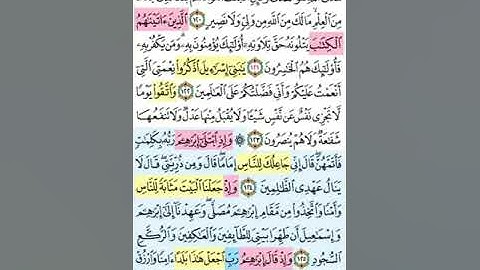 مِنَ ٱلْعِلْمِ مَا لَكَ مِنَ ٱللَّهِ مِن وَلِىٍّ وَلَا نَصِيرٍ ١٢٠ ٱلَّذِينَ ءَاتَيْنَٰهُمُ
ٱلْكِتَٰبَ يَتْلُونَهُۥ حَقَّ تِلَاوَتِهِۦٓ أُو۟لَٰٓئِكَ يُؤْمِنُونَ بِهِۦ وَمَن يَكْفُرْ بِهِۦ
فَأُو۟لَٰٓئِكَ هُمُ ٱلْخَٰسِرُونَ ١٢١ يَٰبَنِىٓ إِسْرَٰٓءِيلَ ٱذْكُرُوا۟ نِعْمَتِىَ ٱلَّتِىٓ
أَنْعَمْتُ عَلَيْكُمْ وَأَنِّى فَضَّلْتُكُمْ عَلَى ٱلْعَٰلَمِينَ ١٢٢ وَٱتَّقُوا۟ يَوْمًا
لَّا تَجْزِى نَفْسٌ عَن نَّفْسٍ شَيْـًٔا وَلَا يُقْبَلُ مِنْهَا عَدْلٌ وَلَا تَنفَعُهَا
شَفَٰعَةٌ وَلَا هُمْ يُنصَرُونَ ١٢٣ ۞ وَإِذِ ٱبْتَلَىٰٓ إِبْرَٰهِۦمَ رَبُّهُۥ بِكَلِمَٰتٍ
فَأَتَمَّهُنَّ قَالَ إِنِّى جَاعِلُكَ لِلنَّاسِ إِمَامًا قَالَ وَمِن ذُرِّيَّتِى قَالَ لَا
يَنَالُ عَهْدِى ٱلظَّٰلِمِينَ ١٢٤ وَإِذْ جَعَلْنَا ٱلْبَيْتَ مَثَابَةً لِّلنَّاسِ
وَأَمْنًا وَٱتَّخِذُوا۟ مِن مَّقَامِ إِبْرَٰهِۦمَ مُصَلًّى وَعَهِدْنَآ إِلَىٰٓ إِبْرَٰهِۦمَ
وَإِسْمَٰعِيلَ أَن طَهِّرَا بَيْتِىَ لِلطَّآئِفِينَ وَٱلْعَٰكِفِينَ وَٱلرُّكَّعِ
ٱلسُّجُودِ ١٢٥ وَإِذْ قَالَ إِبْرَٰهِۦمُ رَبِّ ٱجْعَلْ هَٰذَا بَلَدًا ءَامِنًا وَٱرْزُقْ